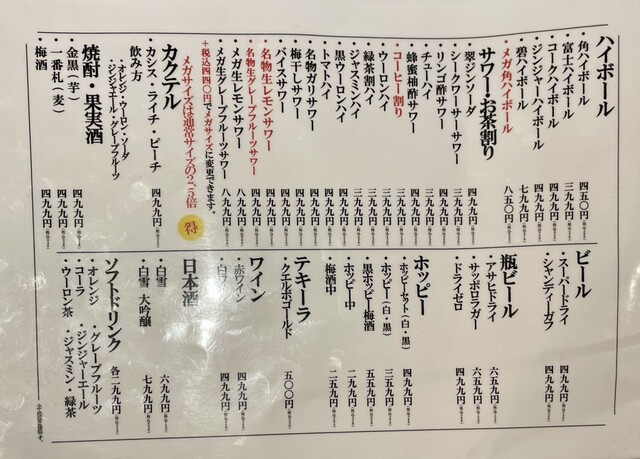 ハイボール
・角ハイボール 四五〇円
・富士ハイボール 三九九円
・コークハイボール 四九九円
・ジンジャーハイボール 四九九円
・碧ハイボール 七九九円
・メガ角ハイボール 八五〇円
サワー・お茶割り
・翠ジンソーダ 四九九円
・シークワーサーサワー 三九九円
・リンゴ酢サワー 三九九円
・チューハイ 三九九円
・蜂蜜柚酢サワー 三九九円
・コーヒー割り 四九九円
・ウーロンハイ 三九九円
・緑茶割ハイ 三九九円
・ジャスミンハイ 三九九円
・黒ウーロンハイ 四九九円
・トマトハイ 四九九円
・名物ガリサワー 四九九円
・梅干しサワー 四九九円
・バイスサワー 四九九円
・名物生レモンサワー 四九九円
・名物生グレープフルーツサワー 四九九円
・メガ生レモンサワー 八九九円
・メガ生グレープフルーツサワー 八九九円
+税込四四〇円でメガサイズに変更できます。
メガサイズは通常サイズの2.5倍 得
カクテル
・カシス・ライチ・ピーチ 四九九円
飲み方
・オレンジ・ウーロン・ソーダ
・ジンジャエール・グレープフルーツ
焼酎・果実酒
・金黒(芋) 四九九円
・一番札(麦) 四九九円
・梅酒 四九九円
ビール
・スーパードライ 四九九円
・シャンディーガフ 四九九円
瓶ビール
・アサヒドライ 六五九円
・サッポロラガー 六五九円
・ドライゼロ 四九九円
ホッピー
・ホッピーセット(白・黒) 四九九円
・ホッピー(白・黒) 三九九円
・黒ホッピー梅酒 五五九円
・ホッピー中 二九九円
・梅酒中 二五九円
テキーラ
・クエルボゴールド 五〇〇円
ワイン
・赤ワイン 四九九円
・白ワイン 四九九円
日本酒
・白雪 六九九円
・白雪 大吟醸 七九九円
ソフトドリンク 各二九九円
・オレンジ ・グレープフルーツ
・コーラ ・ジンジャーエール
・ウーロン茶 ・ジャスミン・緑茶